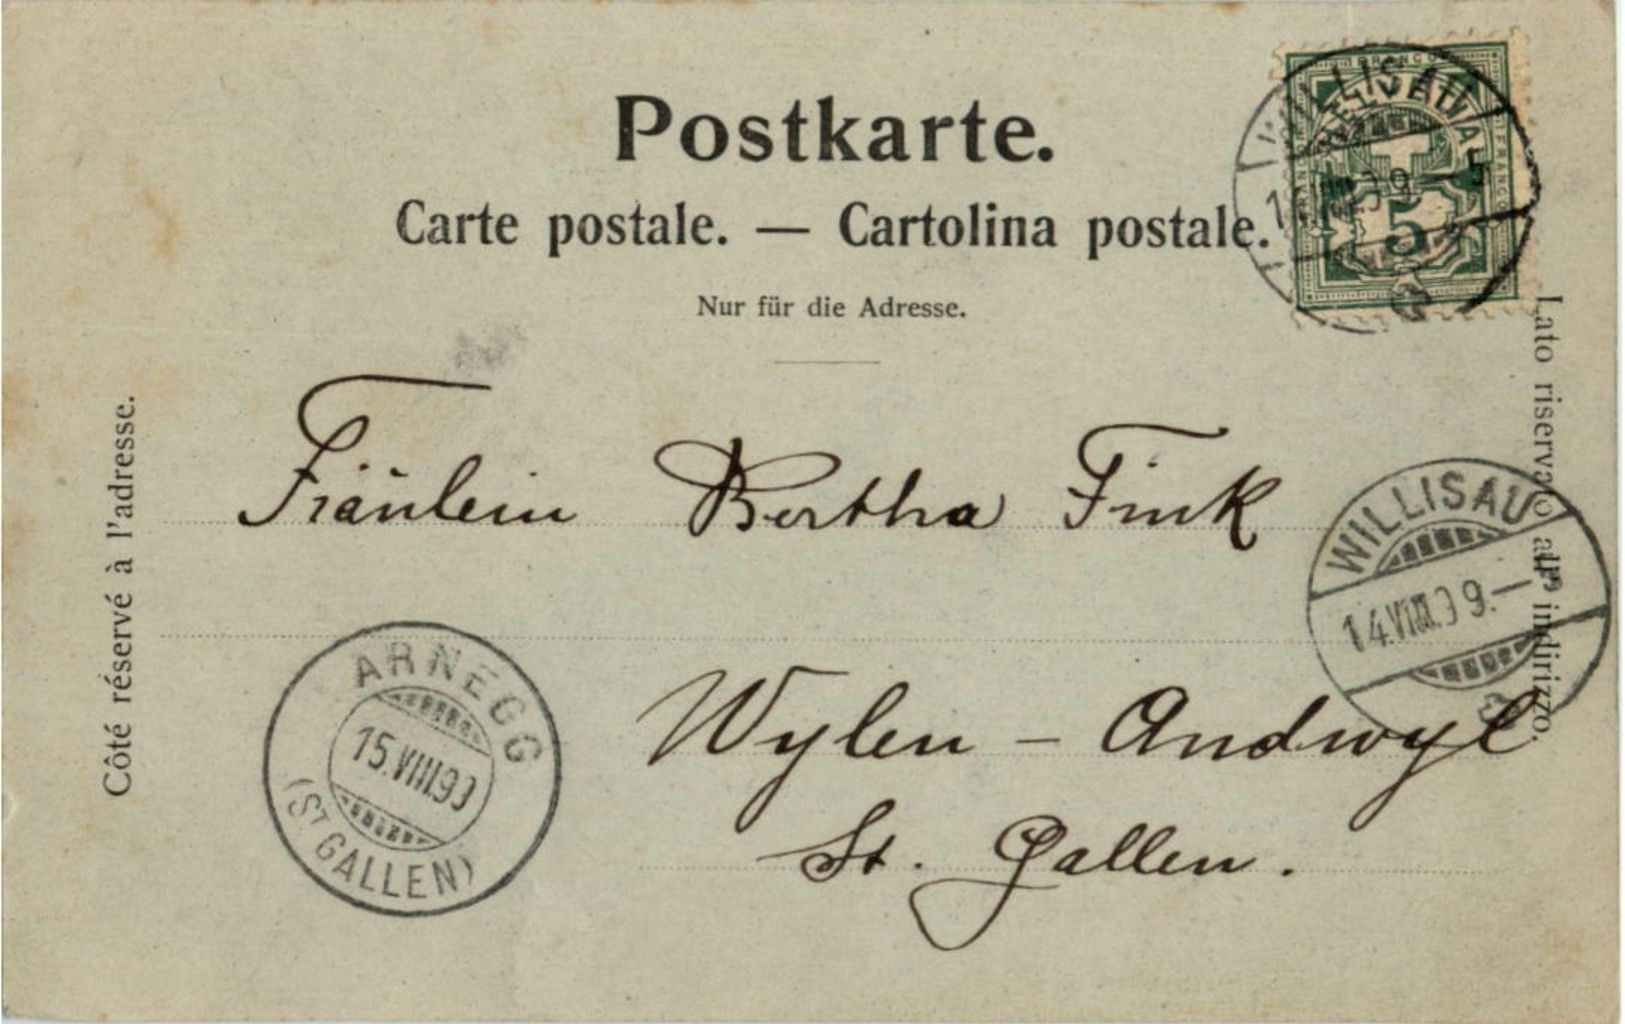 Postkarte.
Carte postale. — Cartolina postale.
Nur für die Adresse.
Côté réservé à l'adresse.
Lato riservato all' indirizzo.
WILLISAU
HELVETIA
FRANCO
5
Fräulein Bertha Fink
WILLISAU
14.VIII.99.—
Wylen - Andwyl
St. Gallen.
ARNEGG
15.VIII.99
(ST GALLEN)